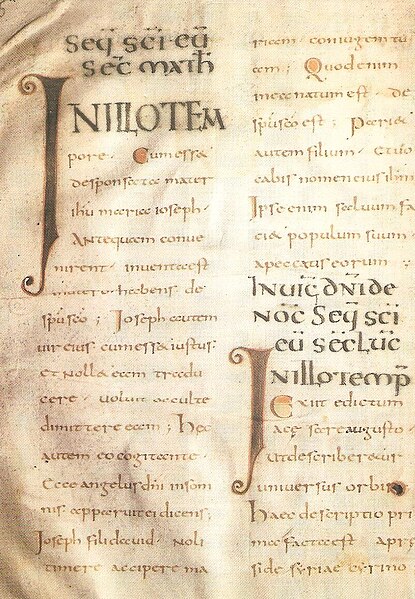 Seq̄ sc̄i eū
sec̄ math̄
INILLOTEM
pore · Cum essæ
desponsata mater
ih̄u maria ioseph ·
Antequam conue
nirent · inuenta est
in utero habens de
sp̄u sc̄o ; Ioseph autem
uir eius cum essæ iustus
et nollæ eam tradu
cere · uoluit occulte
dimittere eam ; Hæc
autem eo cogitante ·
Ecce angelus dn̄i in som
nis apparuit ei dicens ;
Ioseph fili dauid · Noli
timere accipere ma
riam · coniugem tu
am ; Quod enim
in ea natum est · de
sp̄u sc̄o est ; Pariæ
autem filium · Et uo
cabis nomen eius ih̄m
Ipse enim saluum fa
ciæ populum suum ·
a peccatis eorum :
In uig̅ dn̄i de
noc̄ Seq̄ sc̄i
eū sec̄ Luc̄
In illo temp̄
Exiit edictum
a caesare augusto ·
Ut describeretur
uniuersus orbis
Haec descriptio pri
ma facta est a prę
side syriae cyrino